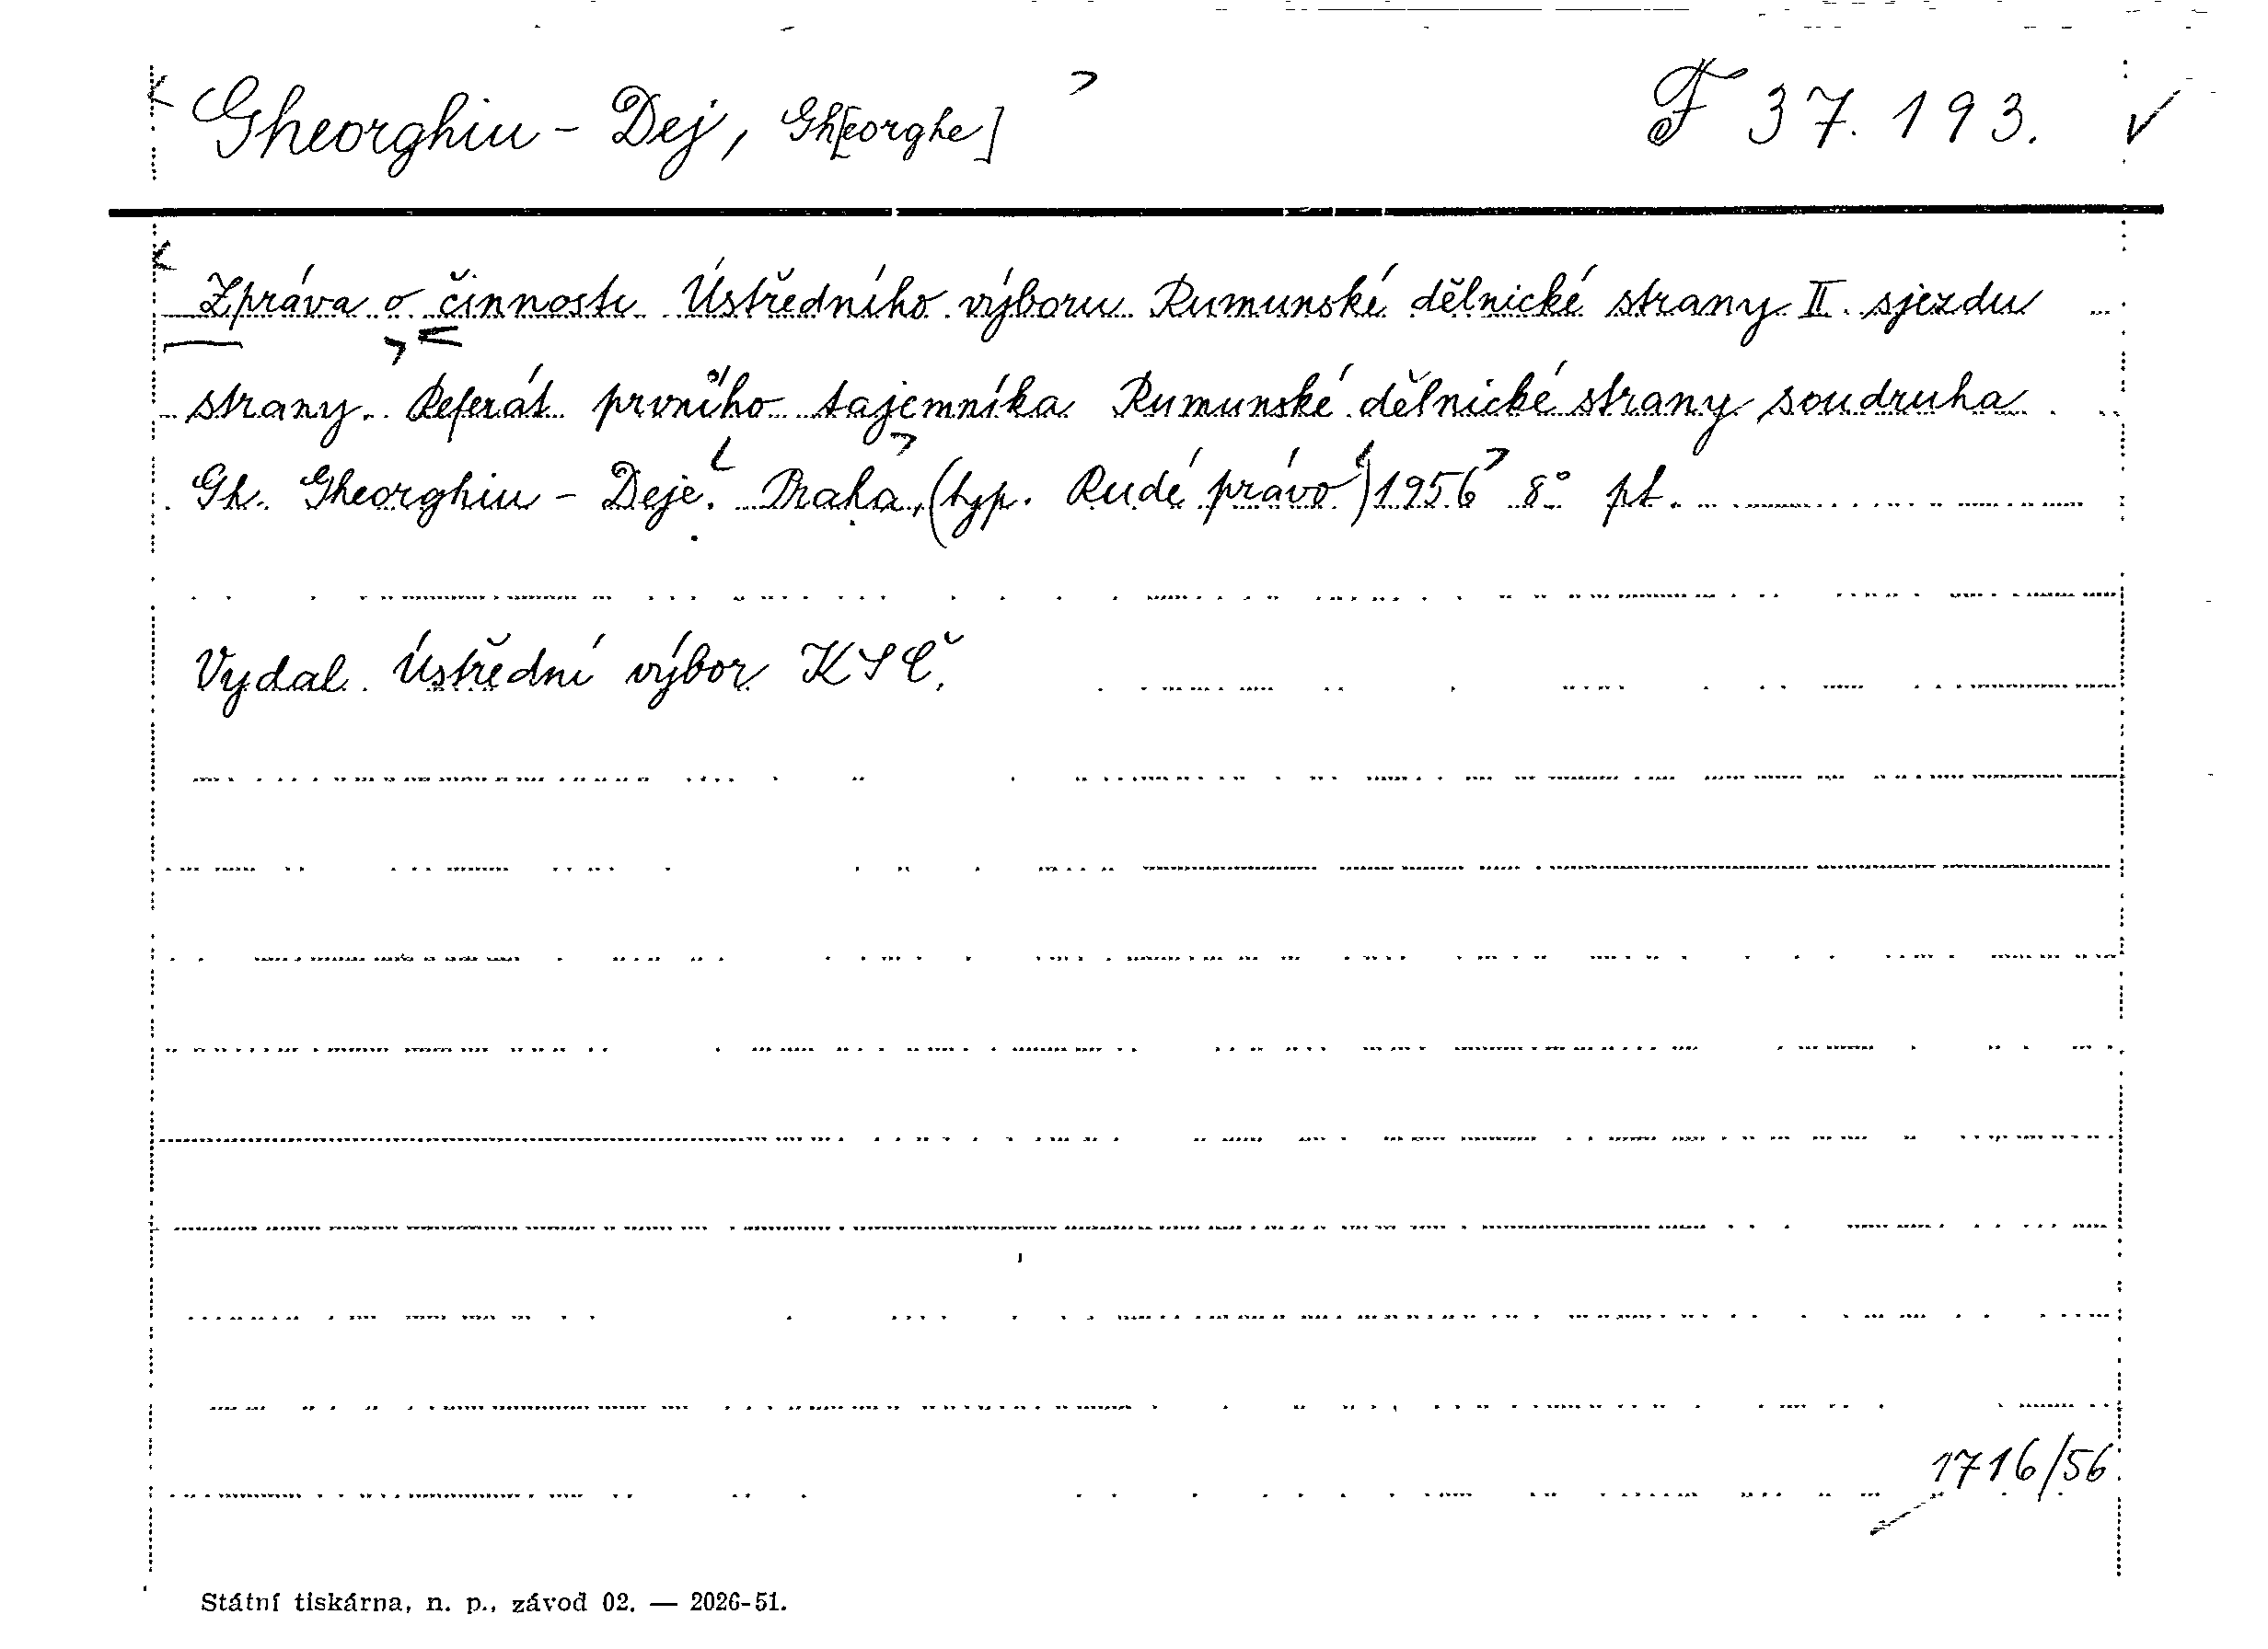 Gheorghiu - Dej, Gh[eorghe] F 37.193.
Zpráva o činnosti Ústředního výboru Rumunské dělnické strany II. sjezdu
strany. Referát prvního tajemníka Rumunské dělnické strany soudruha
Gh. Gheorghiu - Deje. Praha, (typ. Rudé právo) 1956 8° pt.
Vydal Ústřední výbor KSČ.
1716/56.
Státní tiskárna, n. p., závod 02. — 2026-51.